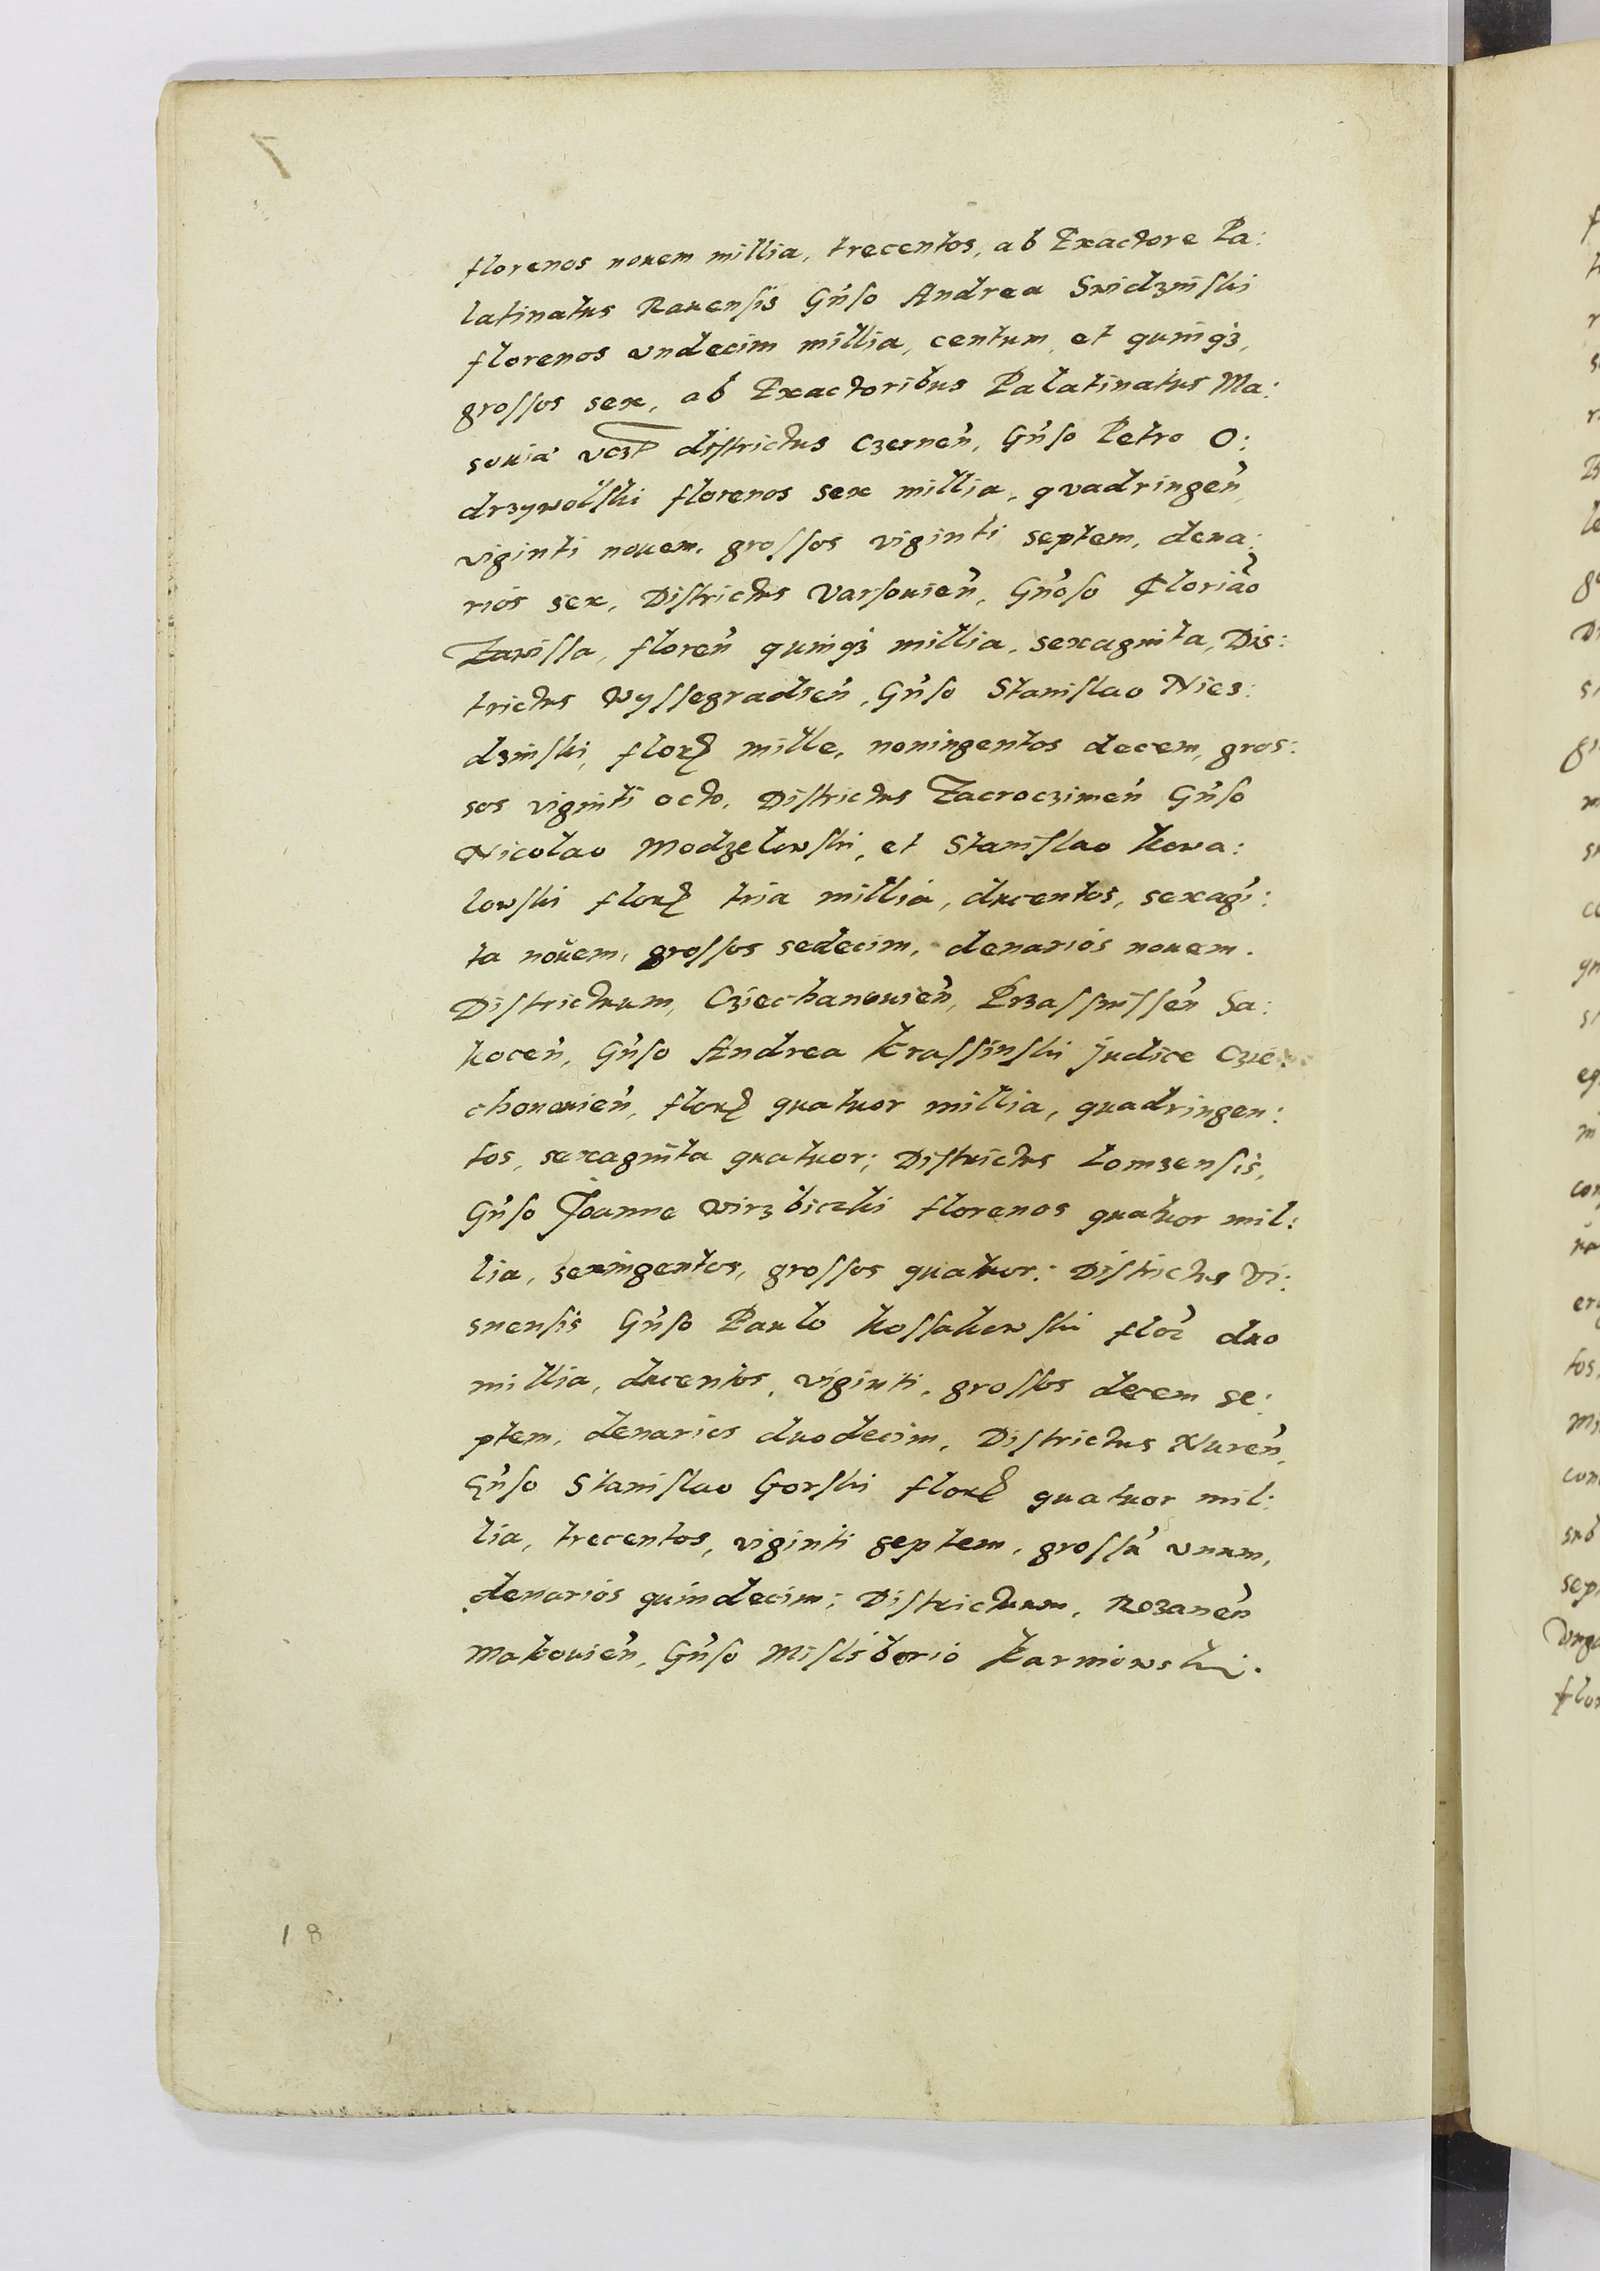 7
florenos nouem millia, trecentos, ab Exactore Pa:
latinatus Rauensis Gn̓so Andrea Swidzinski
florenos vndecim millia, centum, et quinqȝ,
grossos sex, ab Exactoribus Palatinatus Ma:
souiæ vczt districtus Czernen̓, Gn̓so Petro O:
drzywolski florenos sex millia, qvadringen̓
viginti nouem, grossos viginti septem, dena:
rios sex, Districtus Varsouien̓, Gn̓oso Florião
Zawissa, floren̓ quinqȝ millia, sexaginta, Dis:
trictus Wyssegradien̓, Gn̓so Stanislao Niez:
dzinski, florꝭ mille, noningentos decem, gros:
sos viginti octo, Districtus Zacroczimen̓ Gn̓so
Nicolao Modzelowski, et Stanislao Kowa:
lowski florꝭ tria millia, ducentos, sexagī:
ta nouem, grossos sedecim, denarios nouem.
Districtuum, Cziechanouien̓, Przassnissen̓ Sa:
kocen̓, Gn̓so Andrea Krassinski Judice Czie:
chonouien̓, florꝭ quatuor millia, quadringen:
tos, sexaginta quatuor; Districtus Lomzensis,
Gn̓so Joanne Wirzbiczki florenos quatuor mil:
lia, sexingentos, grossos quatuor: Districtus Vi:
snensis Gn̓so Paulo Kossakowski flor̓ duo
millia, ducentos, viginti, grossos decem se:
ptem, denarios duodecim, Districtus Nuren̓,
Gn̓so Stanislao Gorski florꝭ quatuor mil:
lia, trecentos, viginti septem, grossū vnum,
denarios quindecim; Districtuum, Rozanen̓
Makouien̓, Gn̓so Misliborio Karniowski.
18